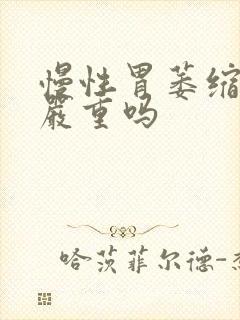 慢性胃萎缩
嚴重吗
哈茨菲尔德-杰